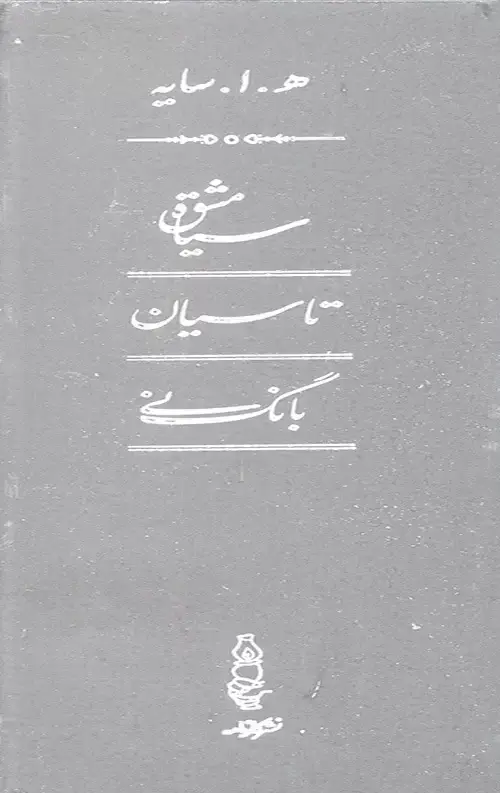 ه‍ . ا . سایه
سیاه مشق
تاسیان
بانگ نی
نشر کارنامه